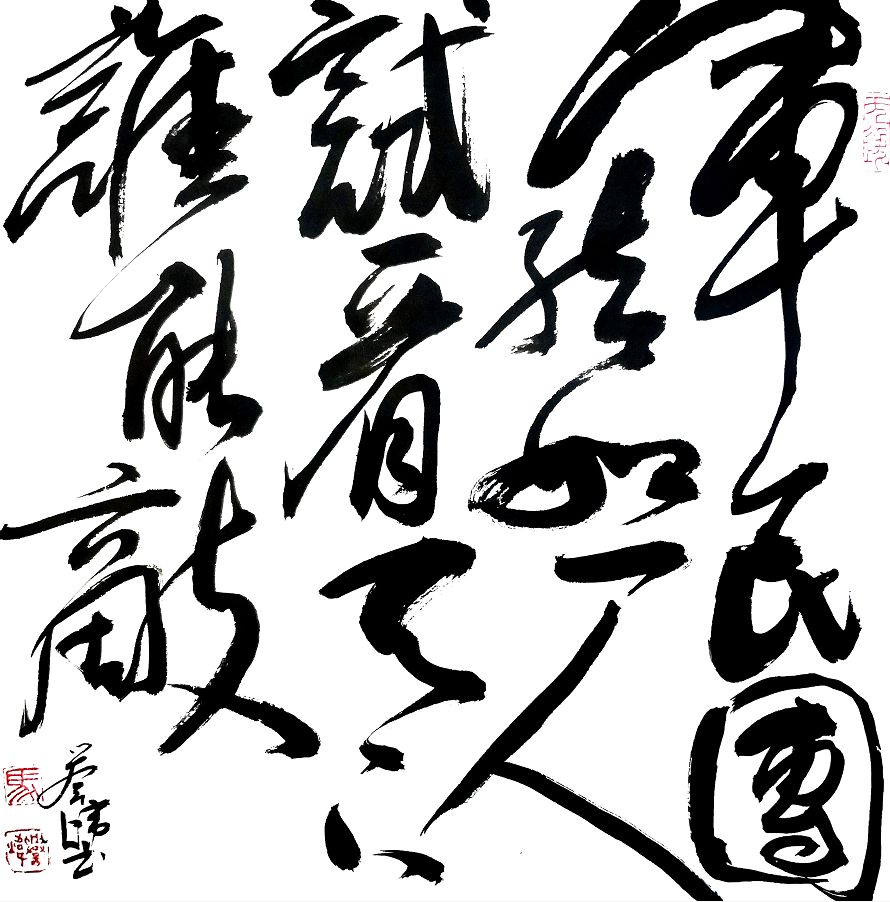 軍民團
結如一人
試看天下
誰能敵
馬